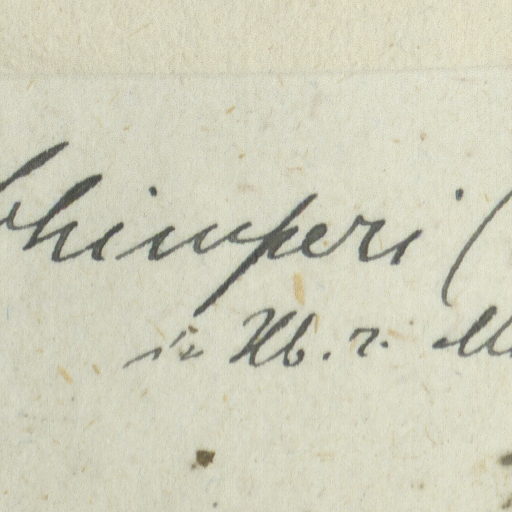 Schimperi (
in Hb. r. M